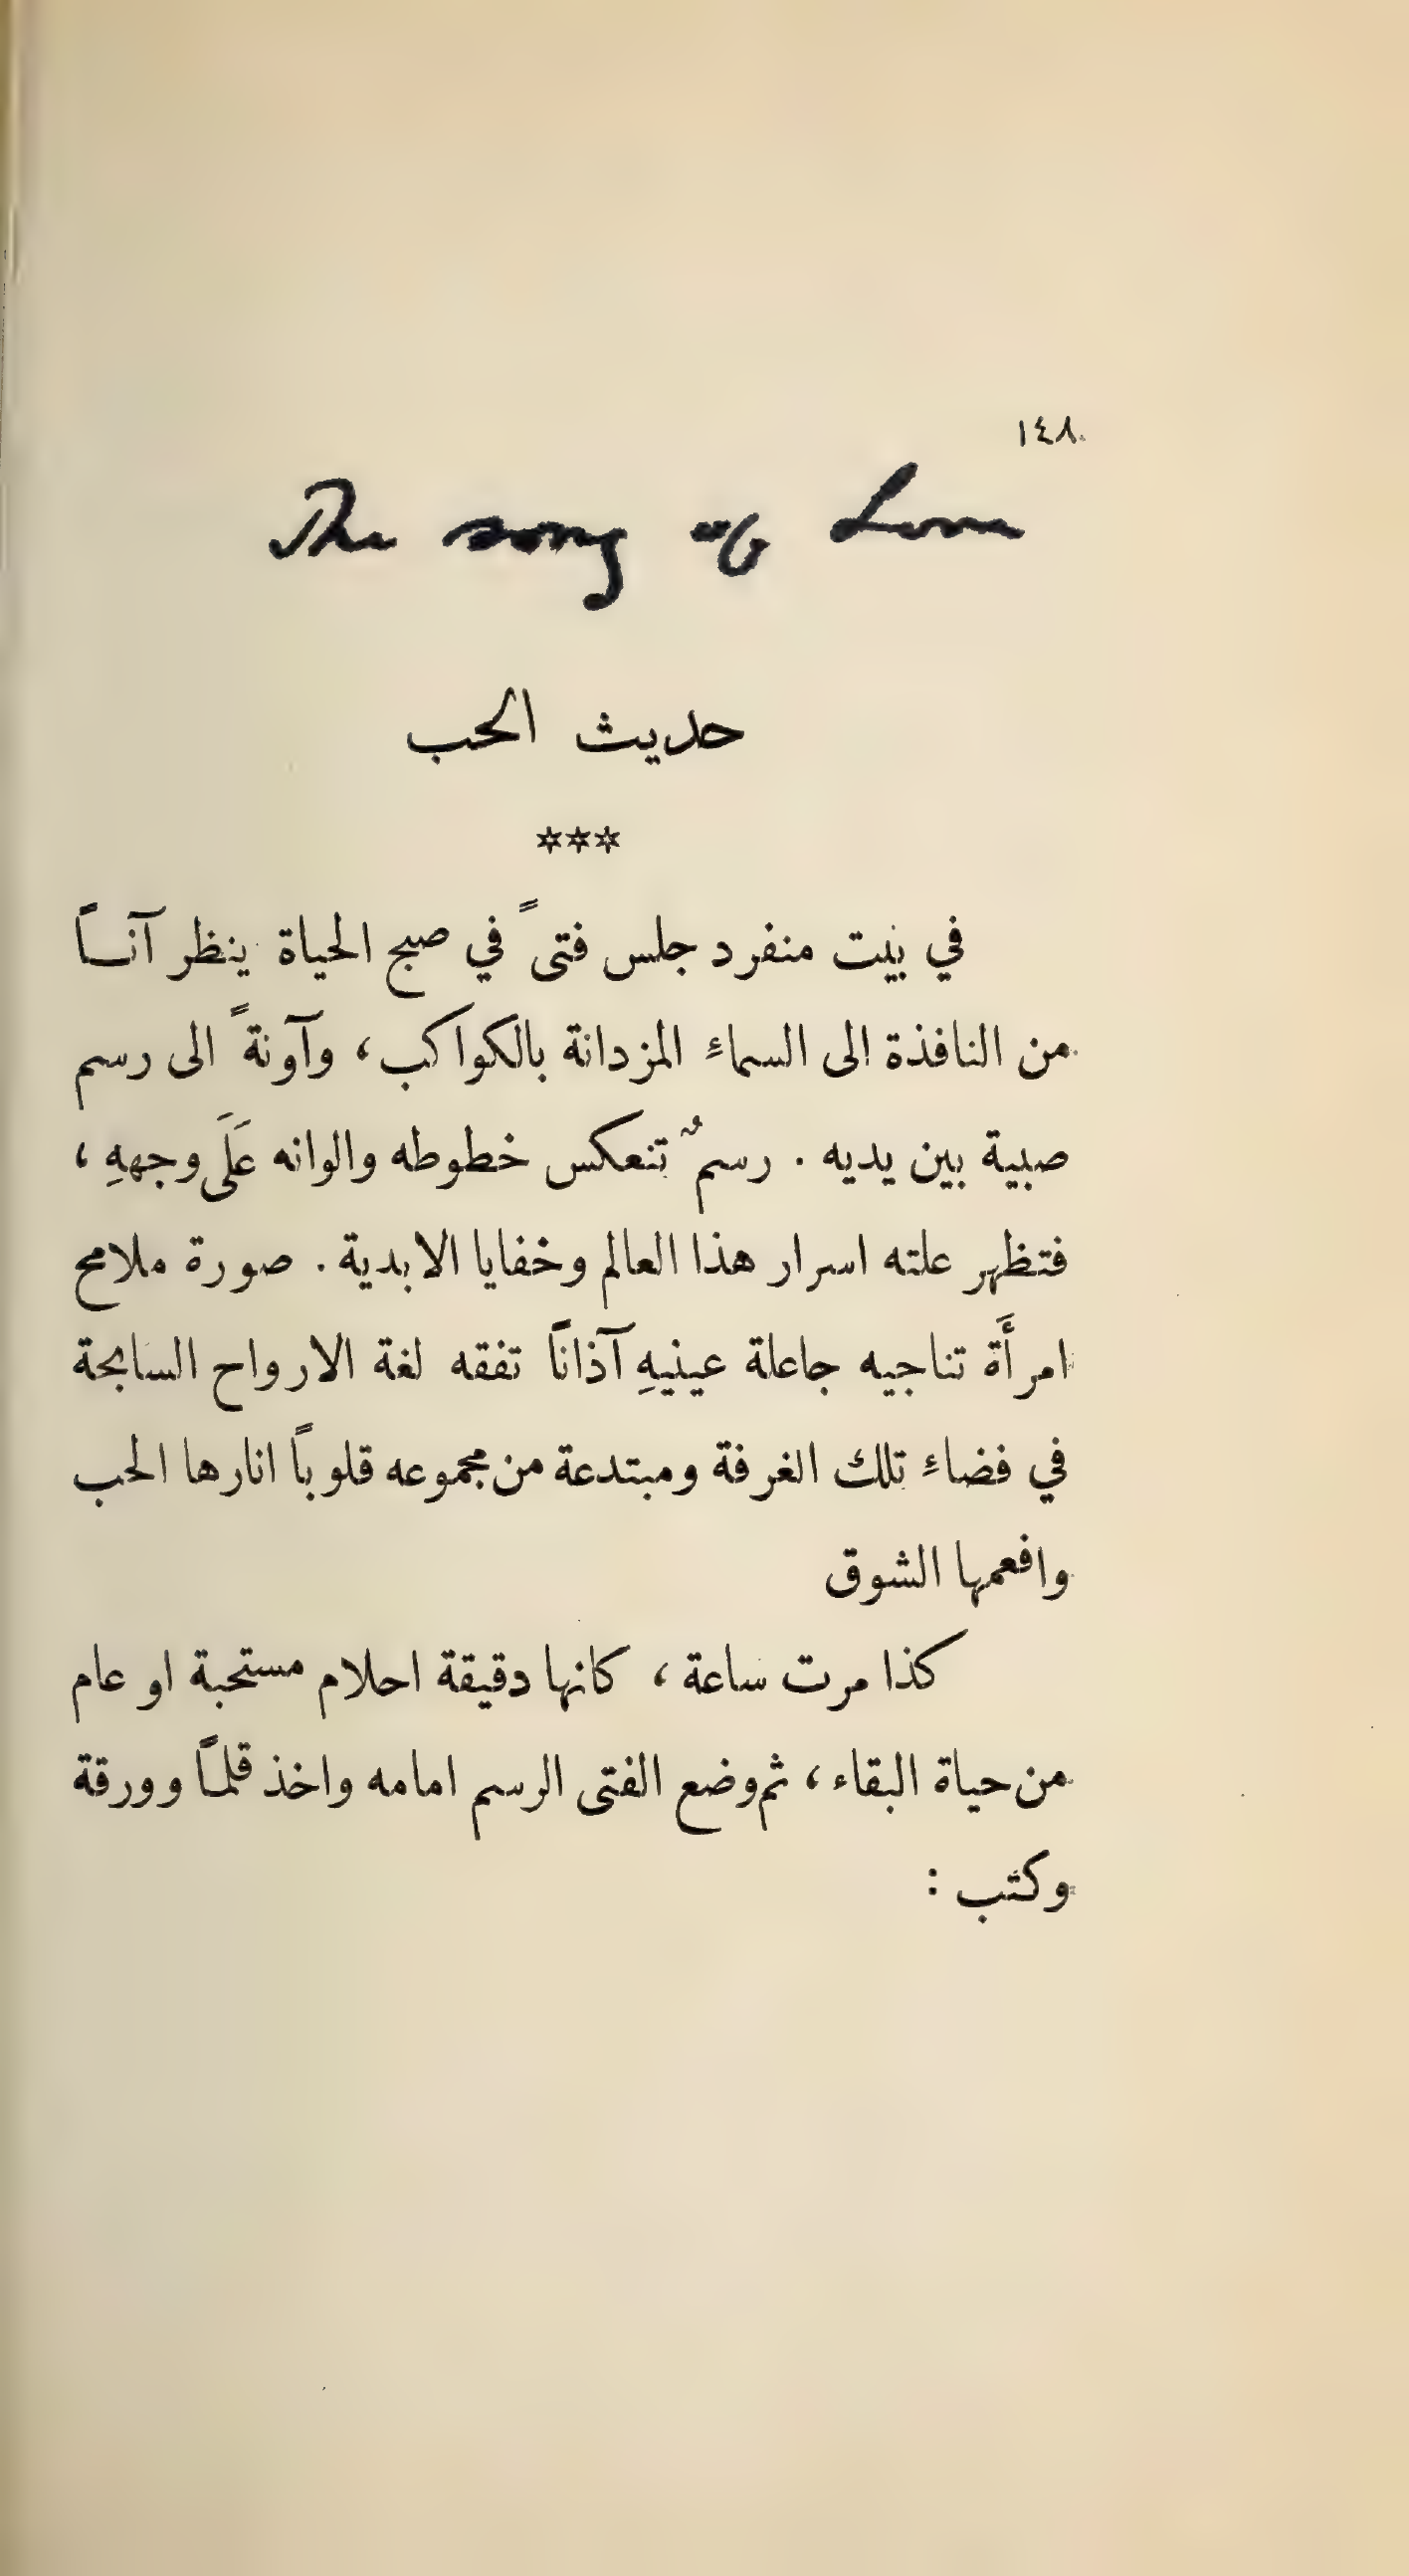 ١٤٨
The song of Love
حديث الحب
***
في بيت منفرد جلس فتىً في صبح الحياة ينظر آنساً
من النافذة الى السماءِ المزدانة بالكواكب، وآونةً الى رسم
صبية بين يديه . رسمٌ تنعكس خطوطه والوانه عَلَى وجههِ ،
فتظهر علته اسرار هذا العالم وخفايا الابدية . صورة ملامح
امرأَة تناجيه جاعلة عينيهِ آذاناً تفقه لغة الارواح السابحة
في فضاءِ تلك الغرفة ومبتدعة من مجموعه قلوباً انارها الحب
وافعمها الشوق
كذا مرت ساعة ، كانها دقيقة احلام مستحبة او عام
من حياة البقاء ، ثم وضع الفتى الرسم امامه واخذ قلماً وورقة
وكتب :